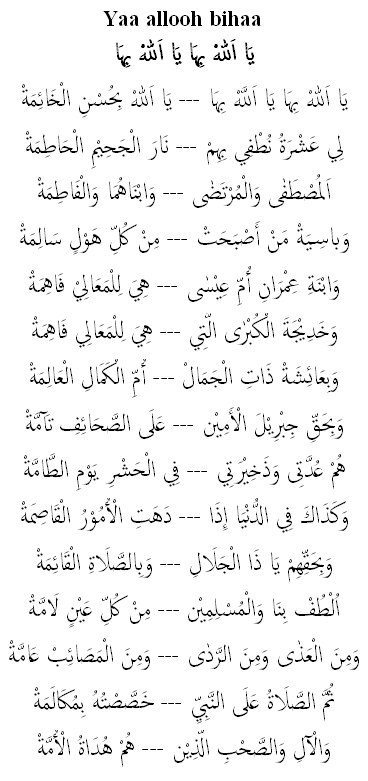 Yaa allooh bihaa
يَا اَللهْ بِهَا يَا اَللهْ بِهَا
يَا اَللهْ بِهَا يَا اَللَّهْ بِهَا --- يَا اَللهْ بِحُسْنِ الْخَائِمَةْ
لِي عَشْرَةُ نُطْفِي بِهِمْ --- نَارَ الْجَحِيْمِ الْحَاطِمَةْ
اَلْمُصْطَفٰى وَالْمُرْتَضٰى --- وَابْنَاهُمَا وَالْفَاطِمَةْ
وَبِاسِيَةْ مَنْ أَصْبَحَتْ --- مِنْ كُلِّ هَوْلٍ سَالِمَةْ
وَابْنَةِ عِمْرَانِ أُمّ عِيْسٰى --- هِيَ لِلْمَعَالِيْ فَاهِمَةْ
وَخَدِيْجَةَ الْكُبْرٰى الَّتِي --- هِيَ لِلْمَعَالِي فَاهِمَةْ
وَبِعَائِشَةْ ذَاتِ الْجَمَالْ --- أُمِّ الْكَمَالِ الْعَالِمَةْ
وَبِحَقِّ جِبْرِيْلَ الْأَمِيْن --- عَلَى الصَّحَائِفِ تَآمَّةْ
هُمْ عُدَّتِى وَذَخِيْرَتِي --- فِي الْحَشْرِ يَوْمِ الطَّامَّةْ
وَكَذَاكَ فِي الدُّنْيَا إِذَا --- دَهَتِ الْأُمُوْرُ الْقَاصِمَةْ
وَبِحَقِّهِمْ يَا ذَا الْجَلَالِ --- وَبِالصَّلَاةِ الْقَائِمَةْ
اُلْطُفْ بِنَا وَالْمُسْلِمِيْن --- مِنْ كُلِّ عَيْنٍ لَامَّةْ
وَمِنَ الْعَدٰى وَمِنَ الرَّدٰى --- وَمِنَ الْمَصَائِبْ عَامَّةْ
ثُمَّ الصَّلَاةُ عَلَى النَّبِيّ --- خَصَّصْتُهُ بِمُكَالَمَةْ
وَالْآلِ وَالصَّحْبِ الَّذِيْن --- هُمْ هُدَاةُ الْأُمَّةْ